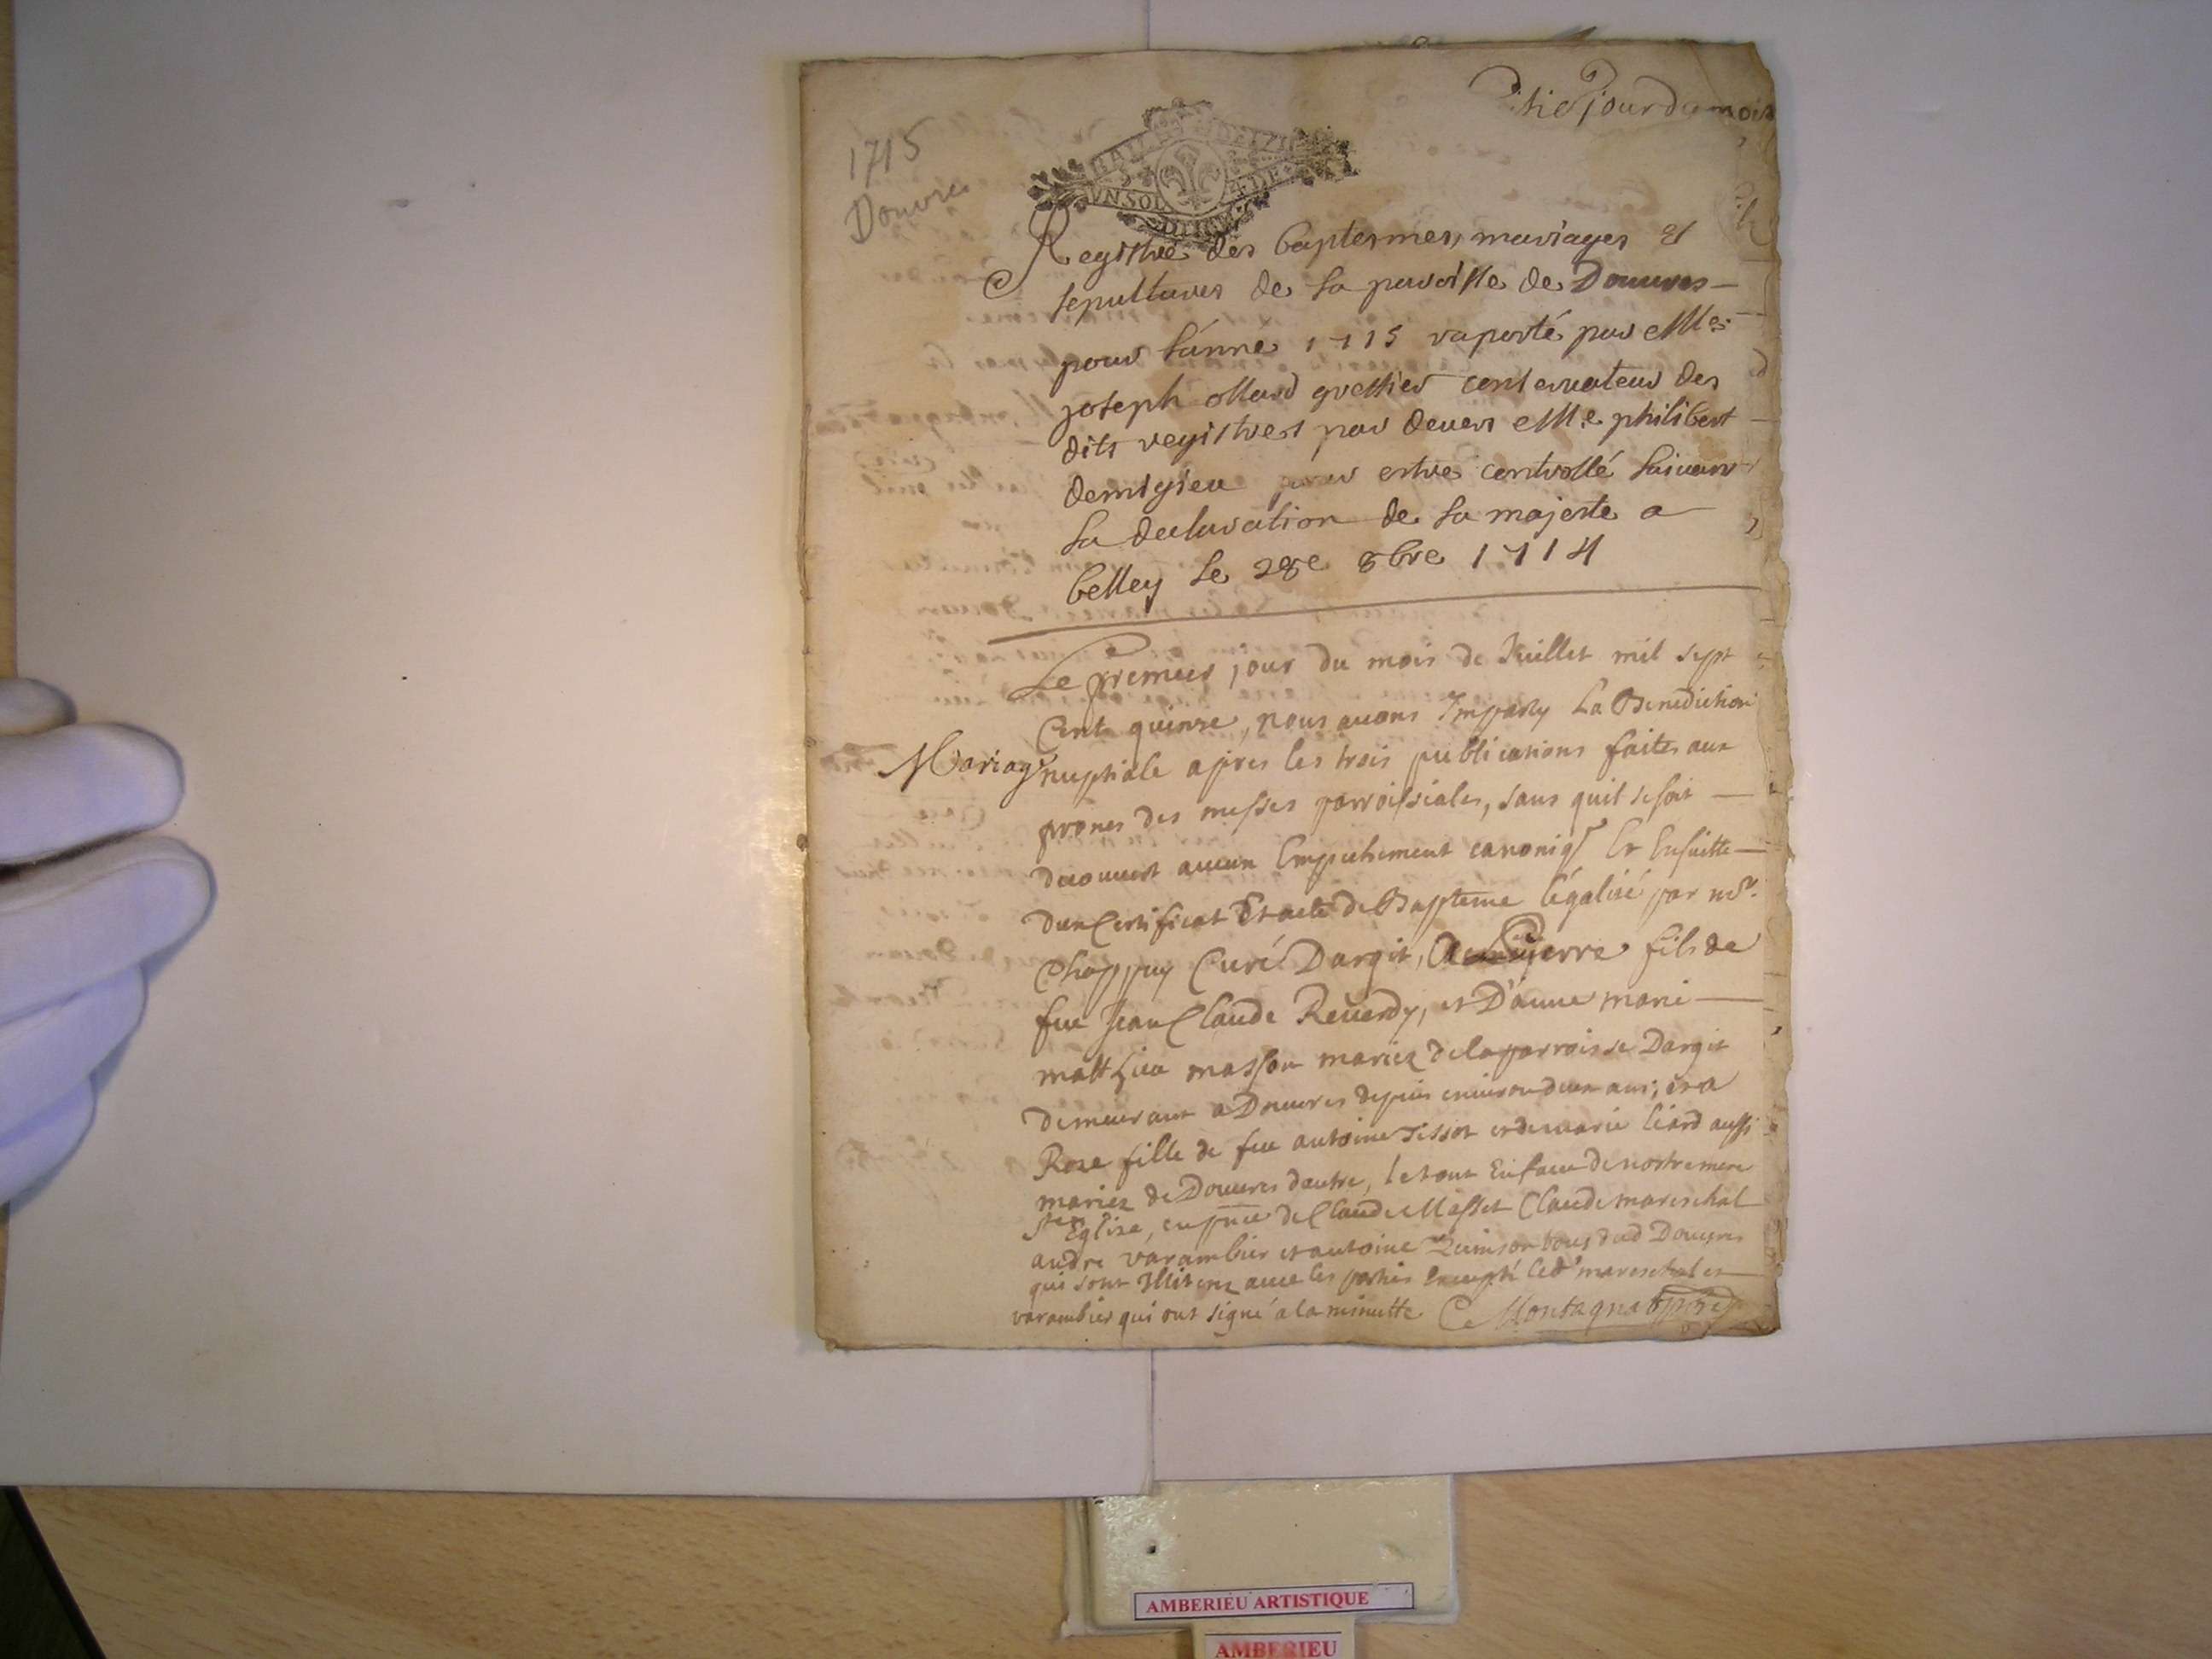 jour du mois
1715
Douvres
UNSOL
Registre des baptesmes, mariages et
sepultures de la paroisse de Douvres
pour l'anné 1715 raporté par Me
joseph ollard greffier conservateur des
dits registres par devers Me philibert
demigieu pour estre controllé suivant
la declaration de sa majesté a
belley le 28e 8bre 1714
Le premier jour du mois de Juillet mil sept
Cent quinze, nous avons Imparty La Benediction
Mariage
nuptiale apres les trois publications faites aux
prones des messes parroissiales, sans quil se soit
decouvert aucun Empechement canoniq Et Ensuitte
dun Certificat Et acte de Bapteme légalisé par mr.
Chappuy Curé Dargit, A Pierre fils de
feu Jean Claude Reverdy, et D'anne marie
matthieu masson mariez de la parroisse Dargit
demeurant a Douvres depuis environ deux ans; et a
Roze fille de feu antoine Tissot et de marie liard aussi
mariez de Douvres dautre, le tout En face de nostre mere
ste Eglise, en pnce de Claude Masset Claude mareschal
andre varambier et antoine Quinson tous dud Douvres
qui sont Illiterez avec les parties Excepté led mareschal et
varambier qui ont signé a la minutte Montagnat ptre
AMBERIEU ARTISTIQUE
AMBERIEU